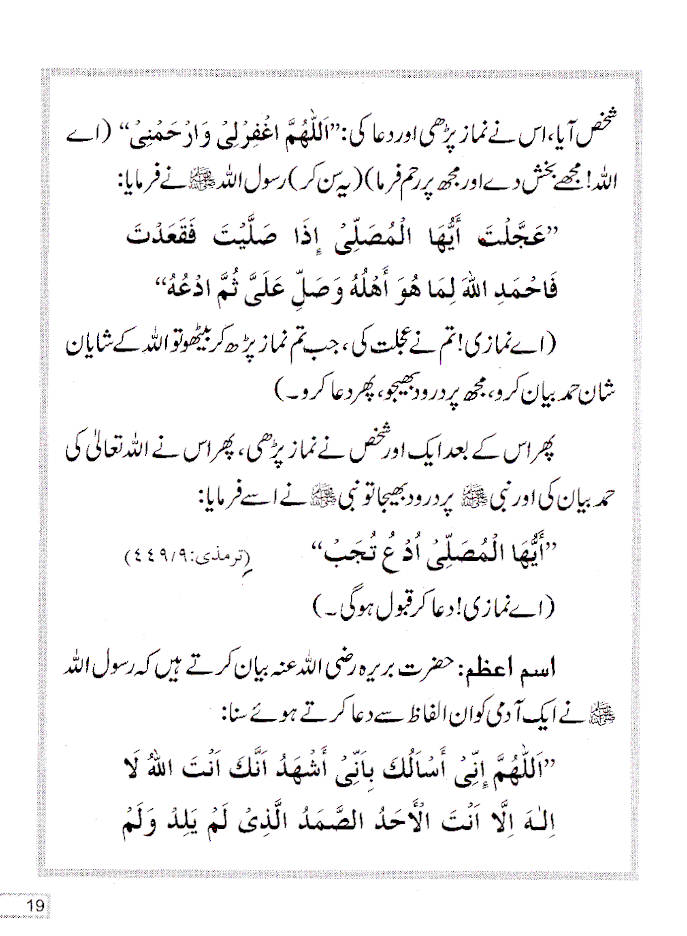 شخص آیا، اس نے نماز پڑھی اور دعا کی: ”اَللّٰهُمَّ اغْفِرْلِیْ وَارْحَمْنِیْ“ (اے
اللہ! مجھے بخش دے اور مجھ پر رحم فرما) (یہ سن کر) رسول اللہ ﷺ نے فرمایا:
”عَجَّلْتَ أَيُّهَا الْمُصَلِّیْ إِذَا صَلَّيْتَ فَقَعَدْتَ
فَاحْمَدِ اللهَ لِمَا هُوَ أَهْلُهُ وَصَلِّ عَلَیَّ ثُمَّ ادْعُهُ“
(اے نمازی! تم نے عجلت کی، جب تم نماز پڑھ کر بیٹھو تو اللہ کے شایان
شان حمد بیان کرو، مجھ پر درود بھیجو، پھر دعا کرو۔)
پھر اس کے بعد ایک اور شخص نے نماز پڑھی، پھر اس نے اللہ تعالیٰ کی
حمد بیان کی اور نبی ﷺ پر درود بھیجا تو نبی ﷺ نے اسے فرمایا:
”أَيُّهَا الْمُصَلِّیْ اُدْعُ تُجَبْ“ (ترمذی: ٩/٤٤٩)
(اے نمازی! دعا کر قبول ہوگی۔)
اسم اعظم: حضرت بریرہ رضی اللہ عنہ بیان کرتے ہیں کہ رسول اللہ
ﷺ نے ایک آدمی کو ان الفاظ سے دعا کرتے ہوئے سنا:
”اَللّٰهُمَّ إِنِّیْ أَسْأَلُكَ بِأَنِّیْ أَشْهَدُ اَنَّكَ اَنْتَ اللهُ لَا
اِلٰهَ اِلَّا اَنْتَ الْأَحَدُ الصَّمَدُ الَّذِیْ لَمْ يَلِدْ وَلَمْ
19